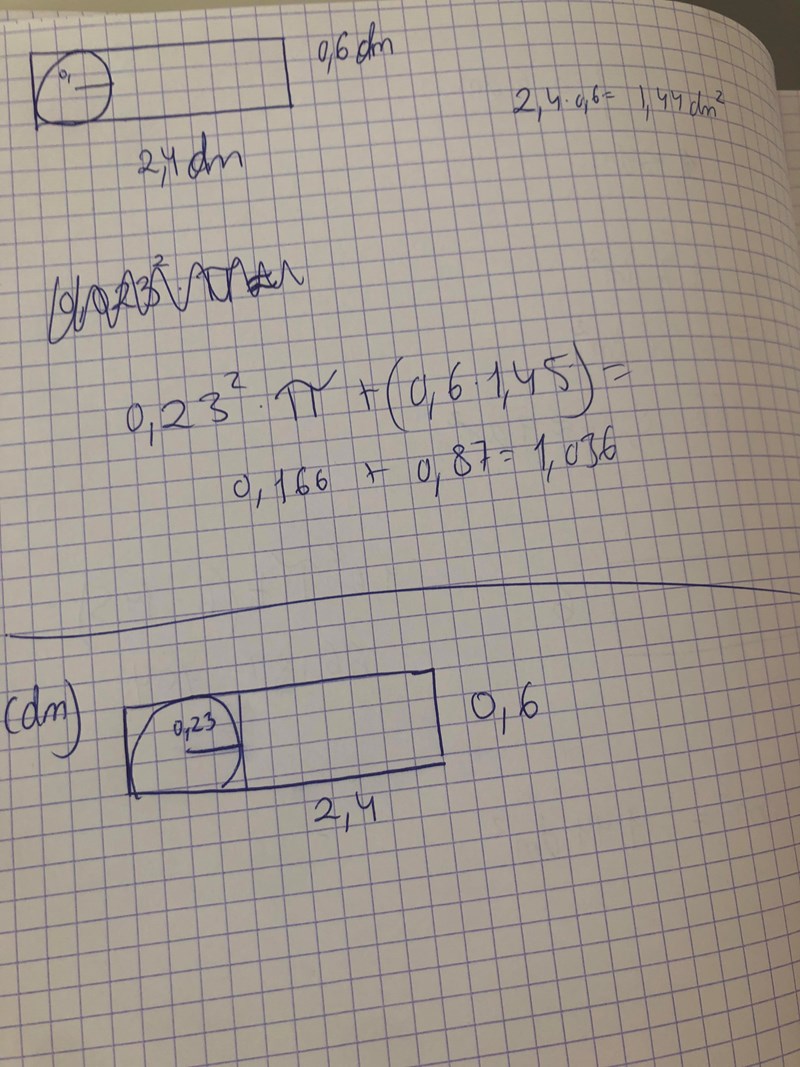 0,
0,6 dm
2,4 · 0,6 = 1,44 dm²
2,4 dm
0,23² · π + (0,6 · 1,45) =
0,166 + 0,87 = 1,036
(dm)
0,23
0,6
2,4